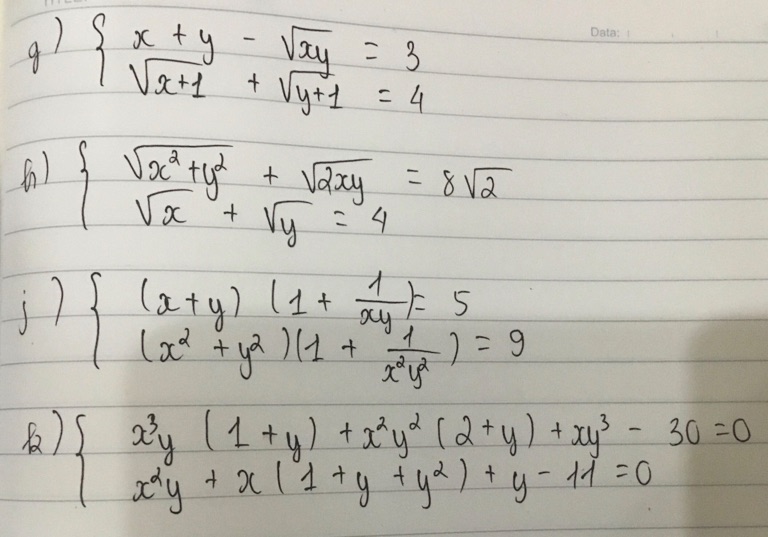 Data:
g) { x + y - √(xy) = 3
√(x+1) + √(y+1) = 4
h) { √(x² + y²) + √(2xy) = 8√2
√x + √y = 4
j) { (x + y) (1 + 1/(xy)) = 5
(x² + y²)(1 + 1/(x²y²)) = 9
k) { x³y (1 + y) + x²y² (2 + y) + xy³ - 30 = 0
x²y + x (1 + y + y²) + y - 11 = 0